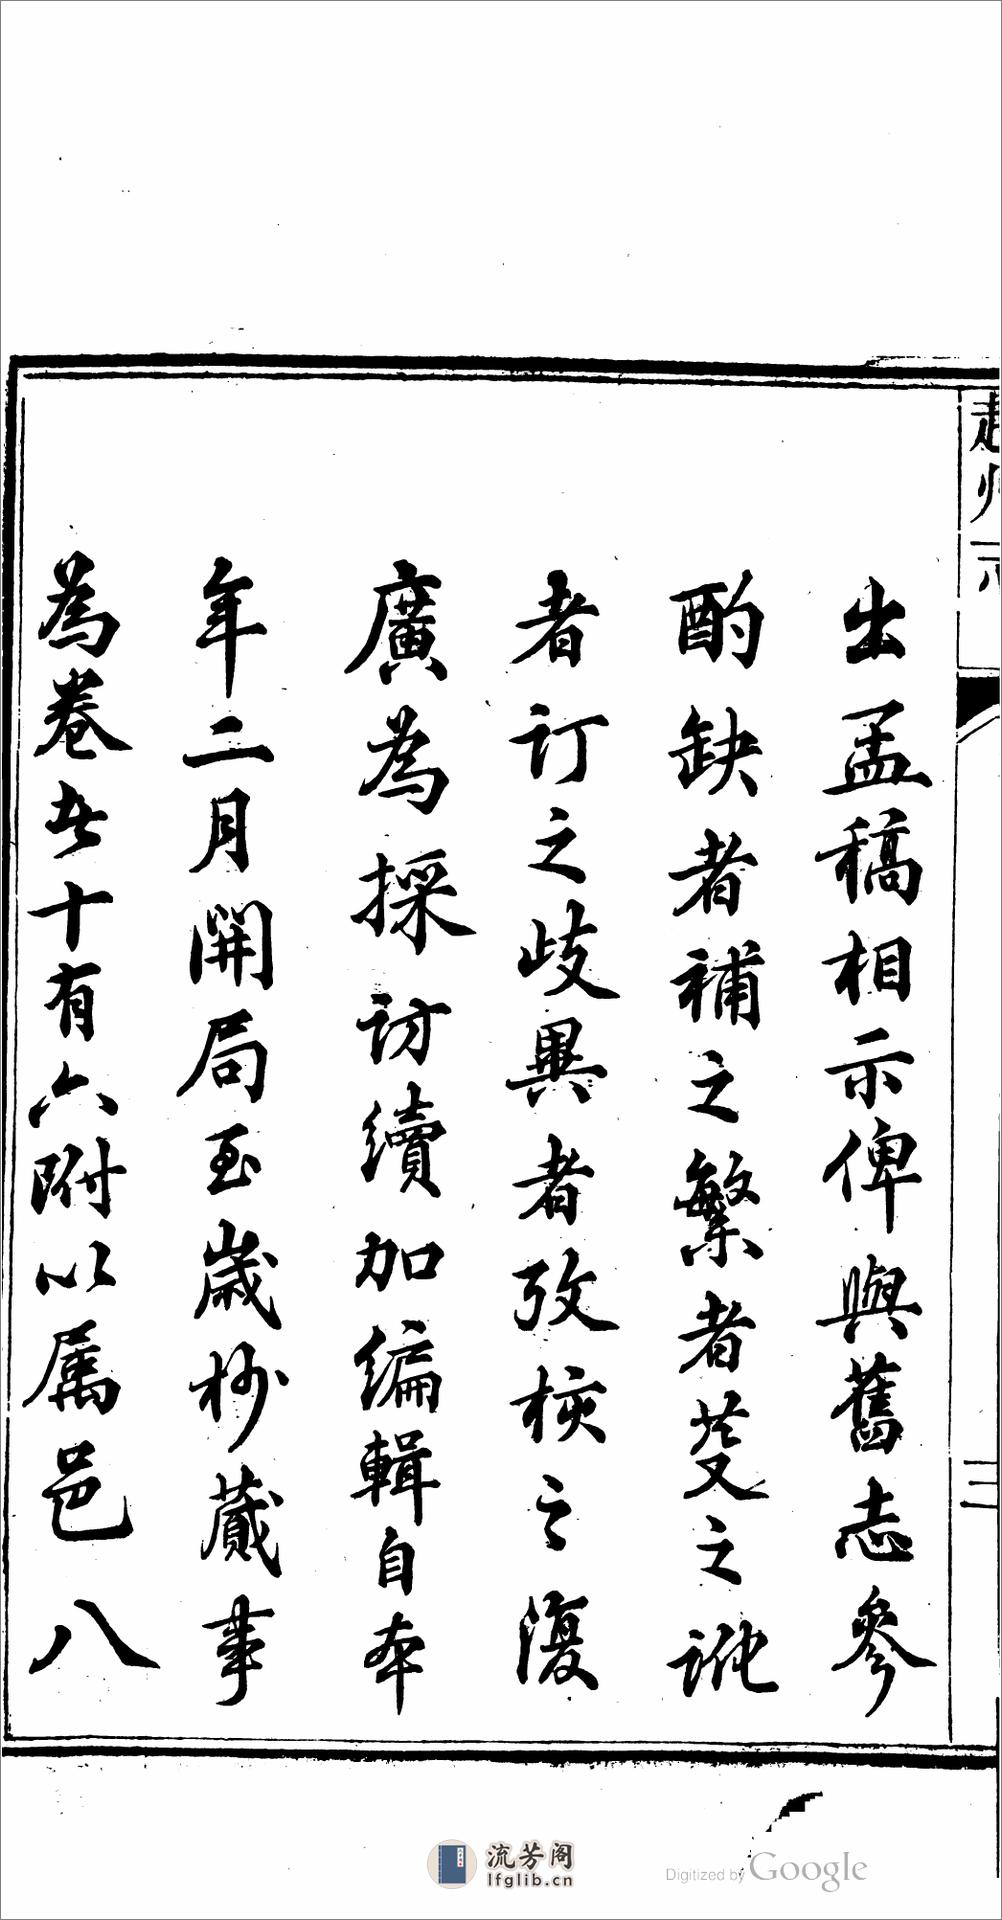 趙州志
三
出孟稿相示俾與舊志參
酌缺者補之繁者芟之訛
者訂之歧異者攷核之復
廣為採訪續加編輯自本
年二月開局至歲杪蕆事
為卷者十有六附以属邑八
流芳阁
lfglib.cn
Digitized by Google